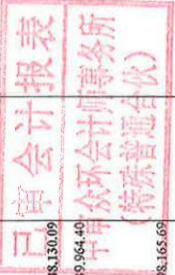 已审会计报表
中审众环会计师事务所
(特殊普通合伙)
8,130.09
9,964.40
8,165.69